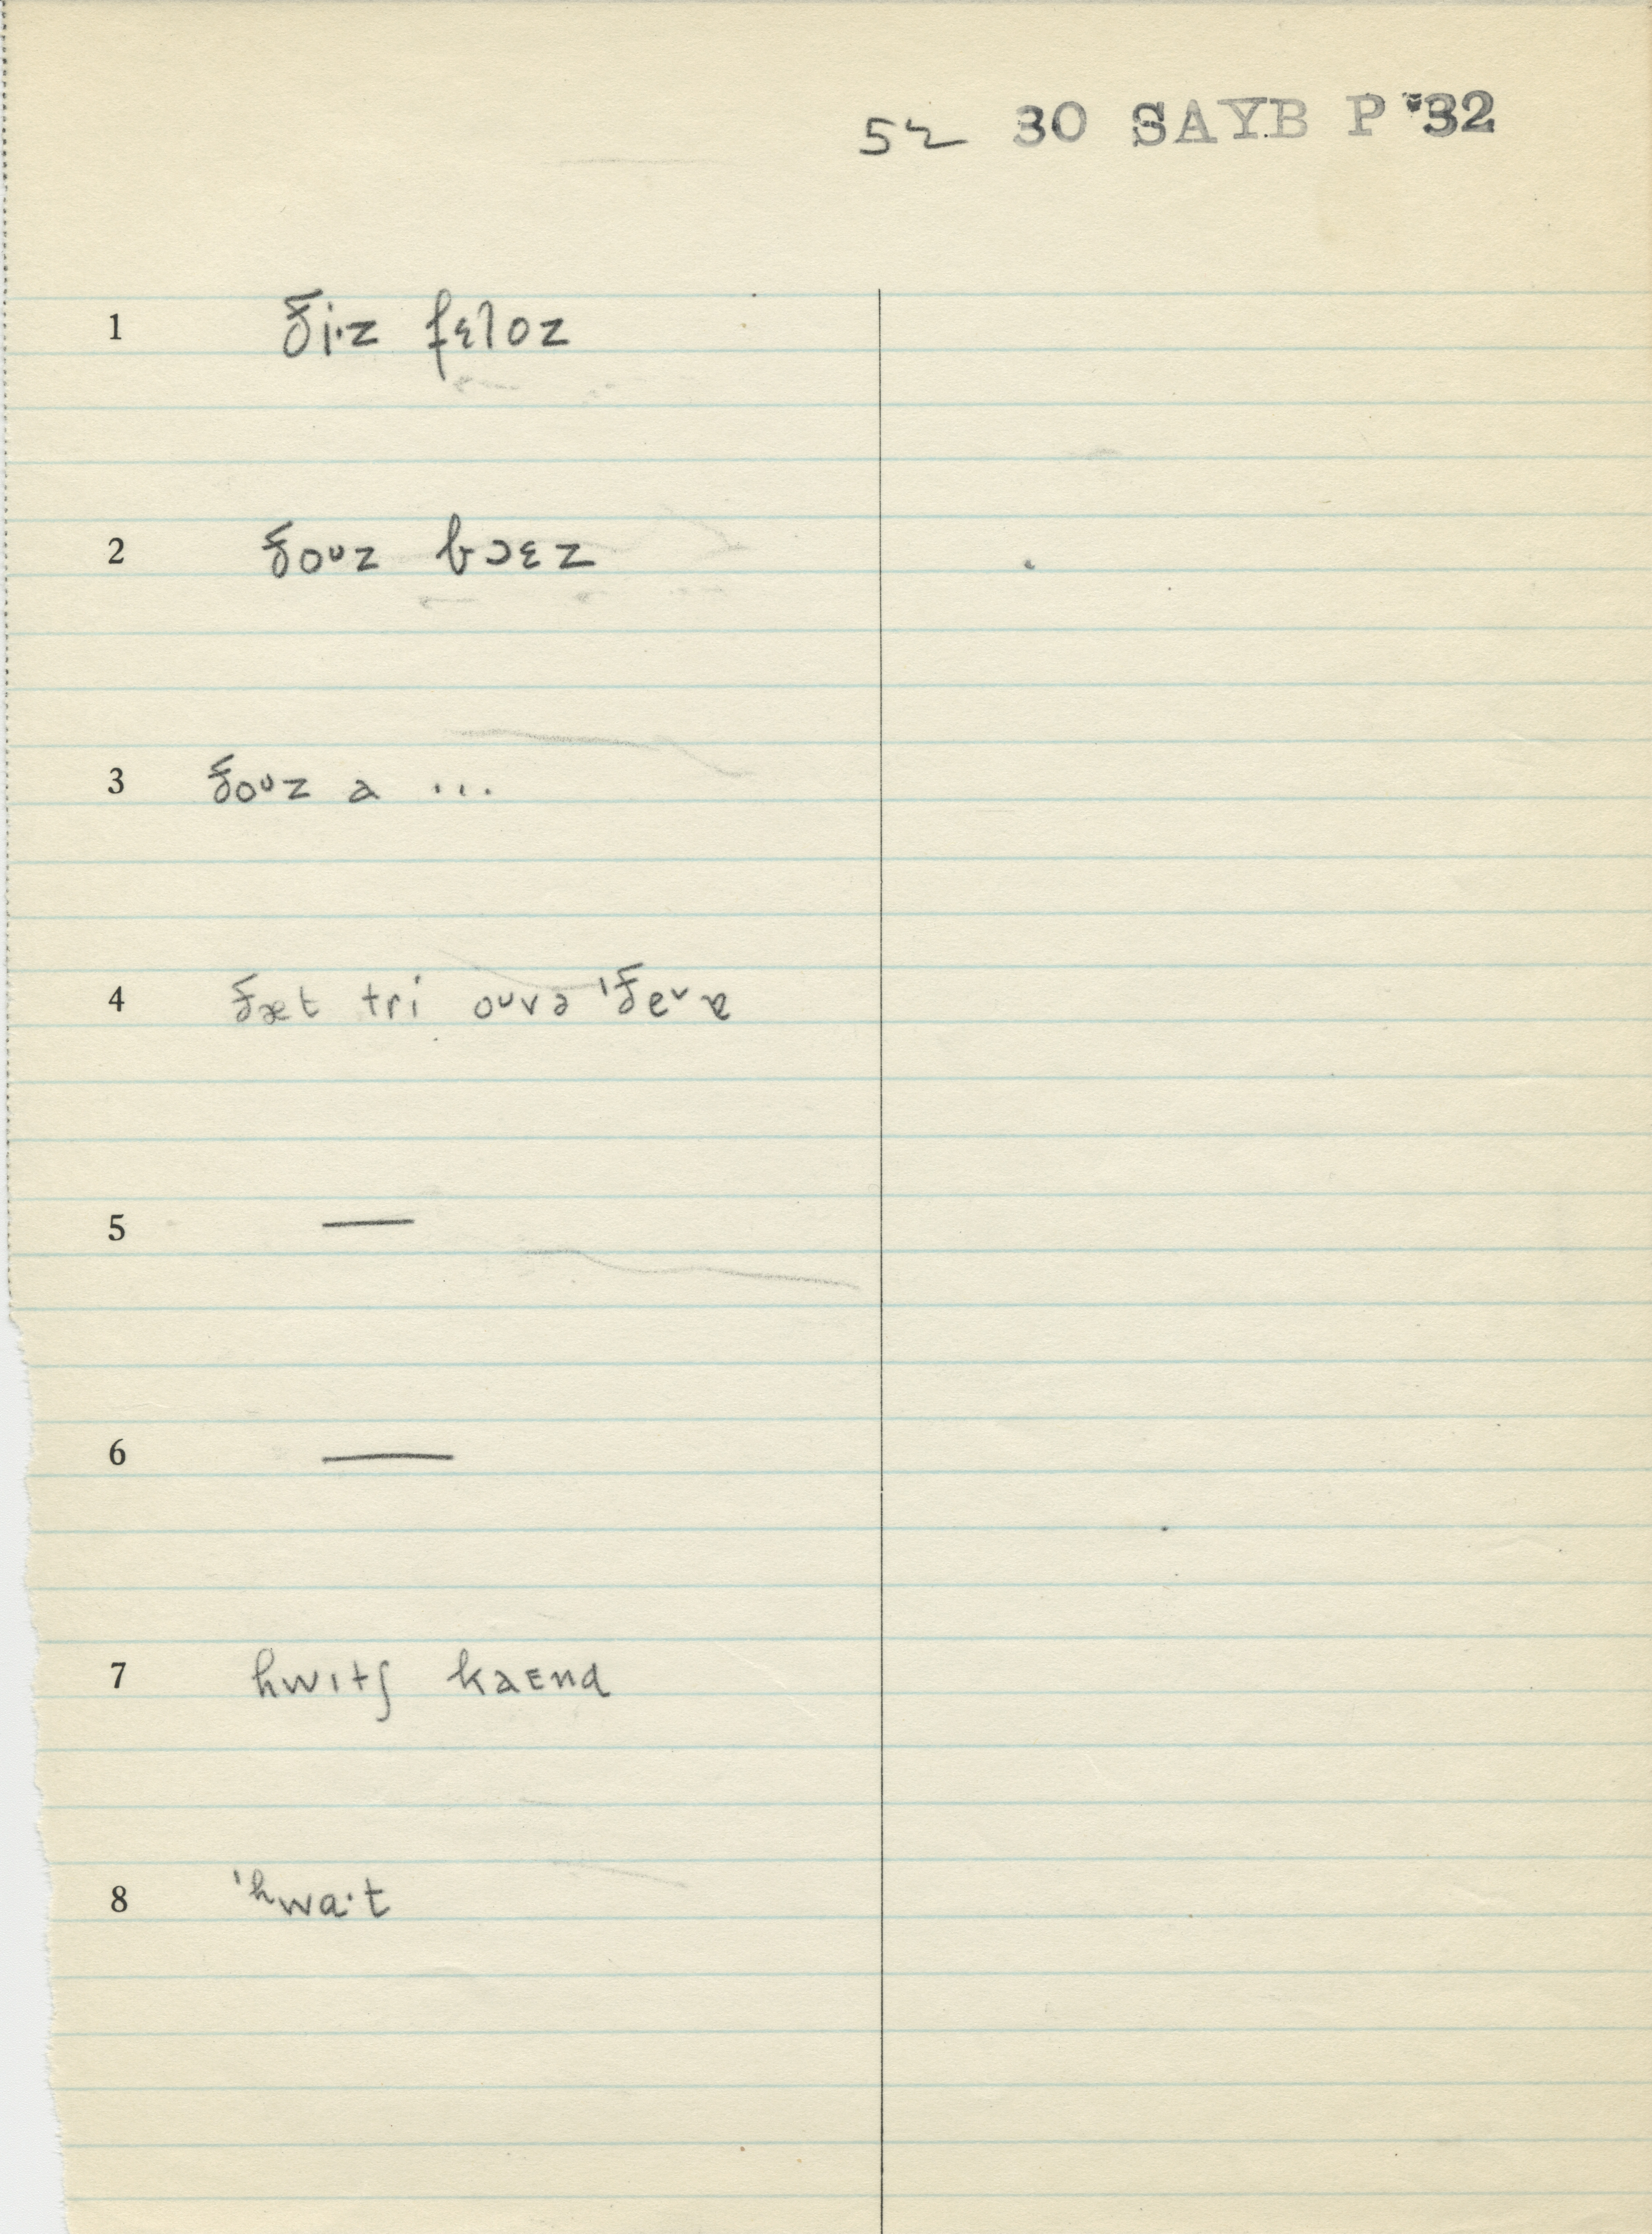 52 30 SAYB P '32
1 ði·z fɛloz
2 ðoᴜz bɔɛz
3 ðoᴜz ə ...
4 ðæt tri oᴜvə ˈðeᵛɐ
5 —
6 —
7 hwɪtʃ kaɛnd
8 ˈhwa·t